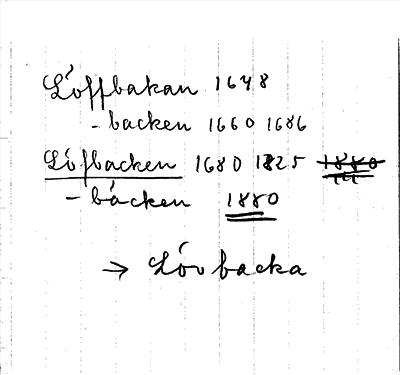 Löffbakan 1648
-backen 1660 1686
Löfbacken 1680 1825 1880
-bäcken 1880
→ Lövbacka